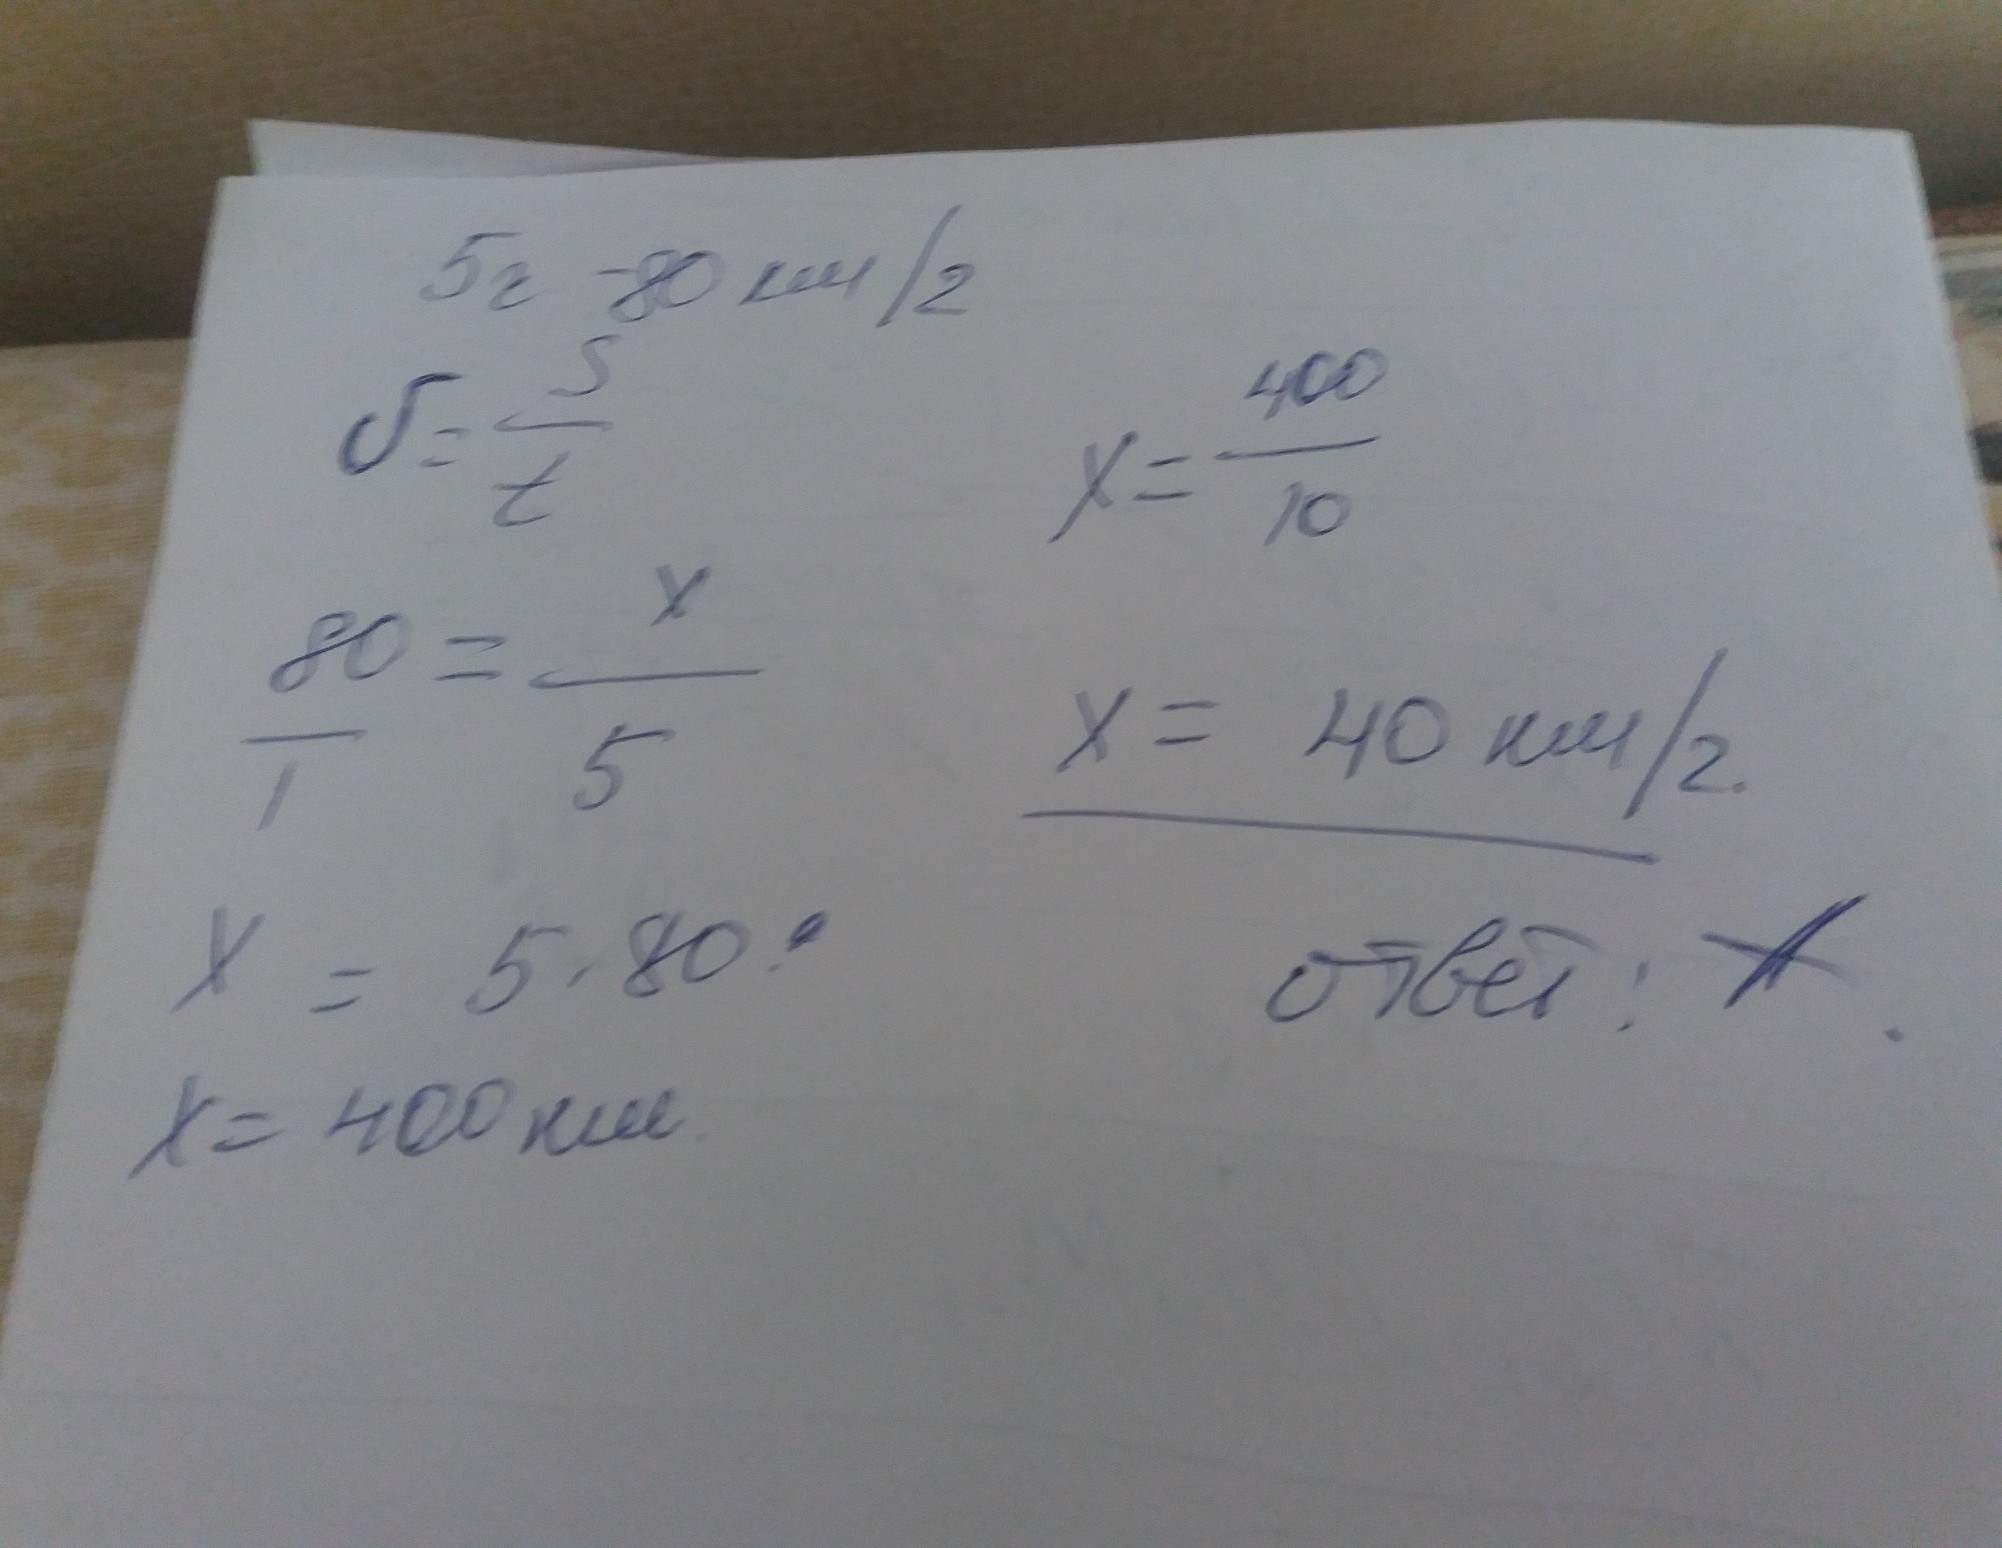 5г - 80 км/г
v = S/t
80/1 = x/5
x = 5 · 80 :
x = 400 км.
x = 400/10
x = 40 км/г.
ответ: